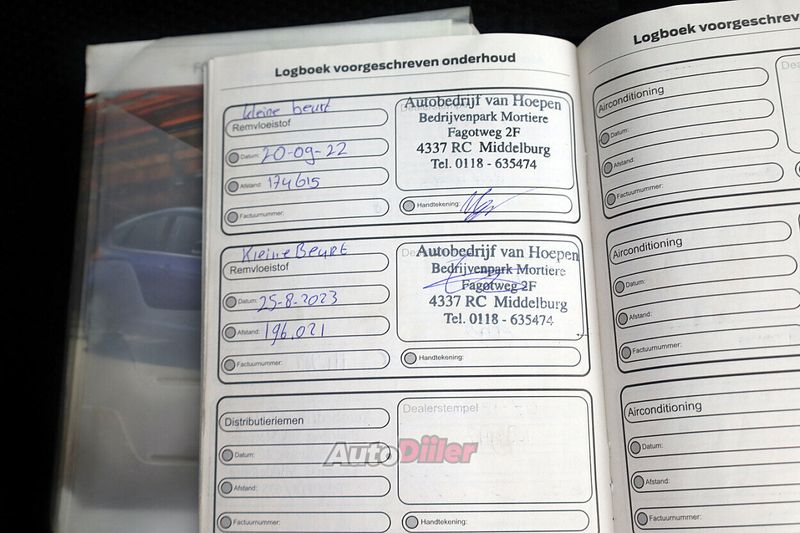 Logboek voorgeschreven onderhoud
kleine beurt
Remvloeistof
Datum: 20-09-22
Afstand: 174615
Factuurnummer:
Autobedrijf van Hoepen
Bedrijvenpark Mortiere
Fagotweg 2F
4337 RC Middelburg
Tel. 0118 - 635474
Handtekening:
Kleine Beurt
Remvloeistof
Datum: 25-8-2023
Afstand: 196.021
Factuurnummer:
Autobedrijf van Hoepen
Bedrijvenpark Mortiere
Fagotweg 2F
4337 RC Middelburg
Tel. 0118 - 635474
Handtekening:
Distributieriemen
Datum:
Afstand:
Factuurnummer:
Dealerstempel
Handtekening:
AutoDiler
Logboek voorgeschreven
Airconditioning
Datum:
Afstand:
Factuurnummer:
Airconditioning
Datum:
Afstand:
Factuurnummer:
Airconditioning
Datum:
Afstand:
Factuurnummer: